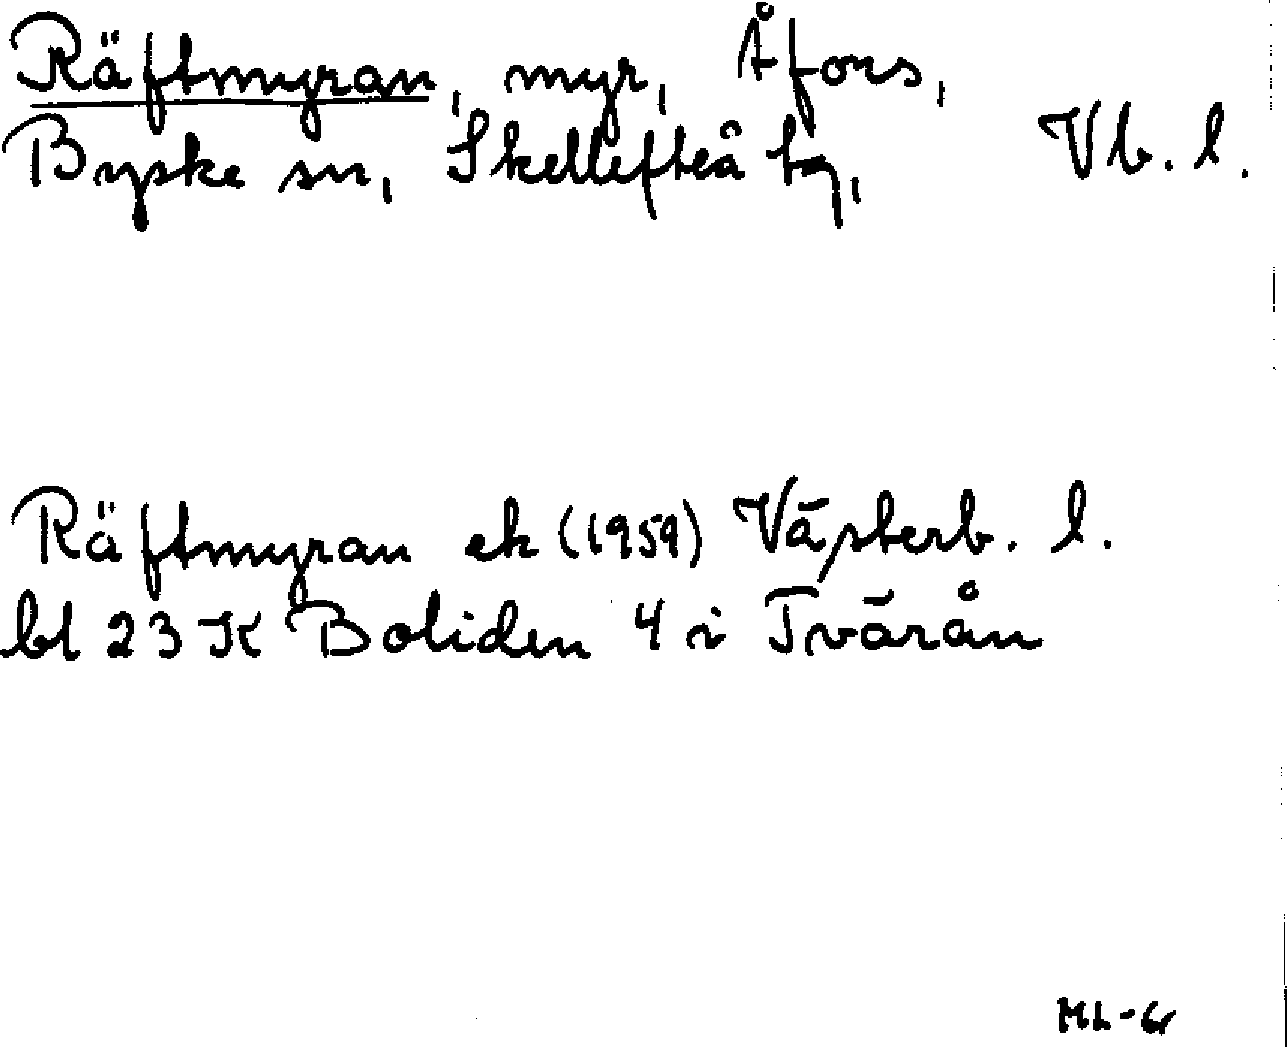 Räftmyran, myr, Åfors,
Byske sn, Skellefteå tg, Vb. l.
Räftmyran ek (1959) Västerb. l.
bl 23 K Boliden 4 i Tvärån